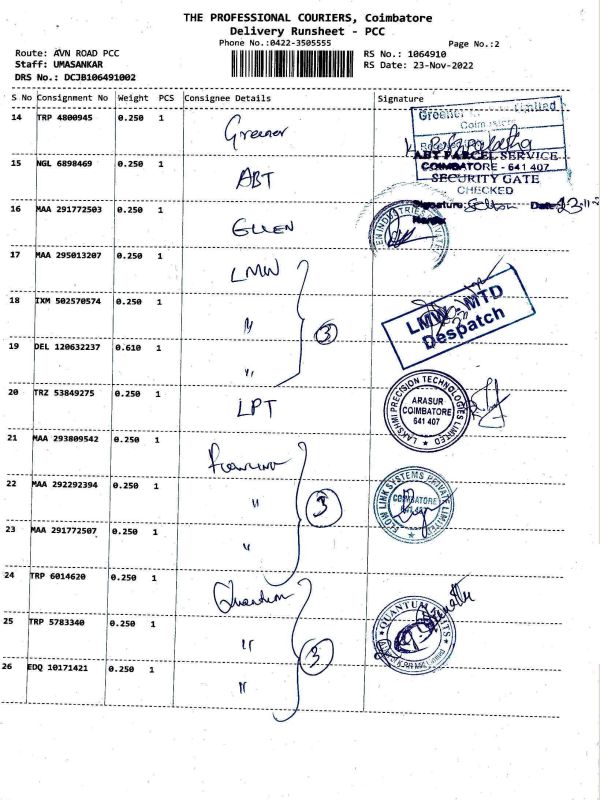 THE PROFESSIONAL COURIERS, Coimbatore
Delivery Runsheet - PCC
Phone No.:0422-3505555
Page No.:2
Route: AVN ROAD PCC
RS No.: 1064910
Staff: UMASANKAR
RS Date: 23-Nov-2022
DRS No.: DCJB106491002
S No Consignment No Weight PCS Consignee Details Signature
14 TRP 4800945 0.250 1 Greener
Greener Limited
Coimbatore
15 NGL 6898469 0.250 1 ABT
ABT PARCEL SERVICE
COIMBATORE - 641 407
SECURITY GATE
CHECKED
Signature: Date: 23-11-2
Name:
16 MAA 291772503 0.250 1 ELLEN
EN INDUSTRIES PRIVATE
17 MAA 295013207 0.250 1 LMW
18 IXM 502570574 0.250 1 "
3
LMW - MTD
Despatch
19 DEL 120632237 0.610 1 "
20 TRZ 53849275 0.250 1 LPT
LAKSHMI PRECISION TECHNOLOGIES LIMITED
ARASUR
COIMBATORE
641 407
21 MAA 293809542 0.250 1
22 MAA 292292394 0.250 1 "
3
FLOW LINK SYSTEMS PRIVATE LIMITED
COIMBATORE
641 407
23 MAA 291772507 0.250 1 "
24 TRP 6014620 0.250 1 Quantum
25 TRP 5783340 0.250 1 "
3
QUANTUM KNITS
26 EDQ 10171421 0.250 1 "